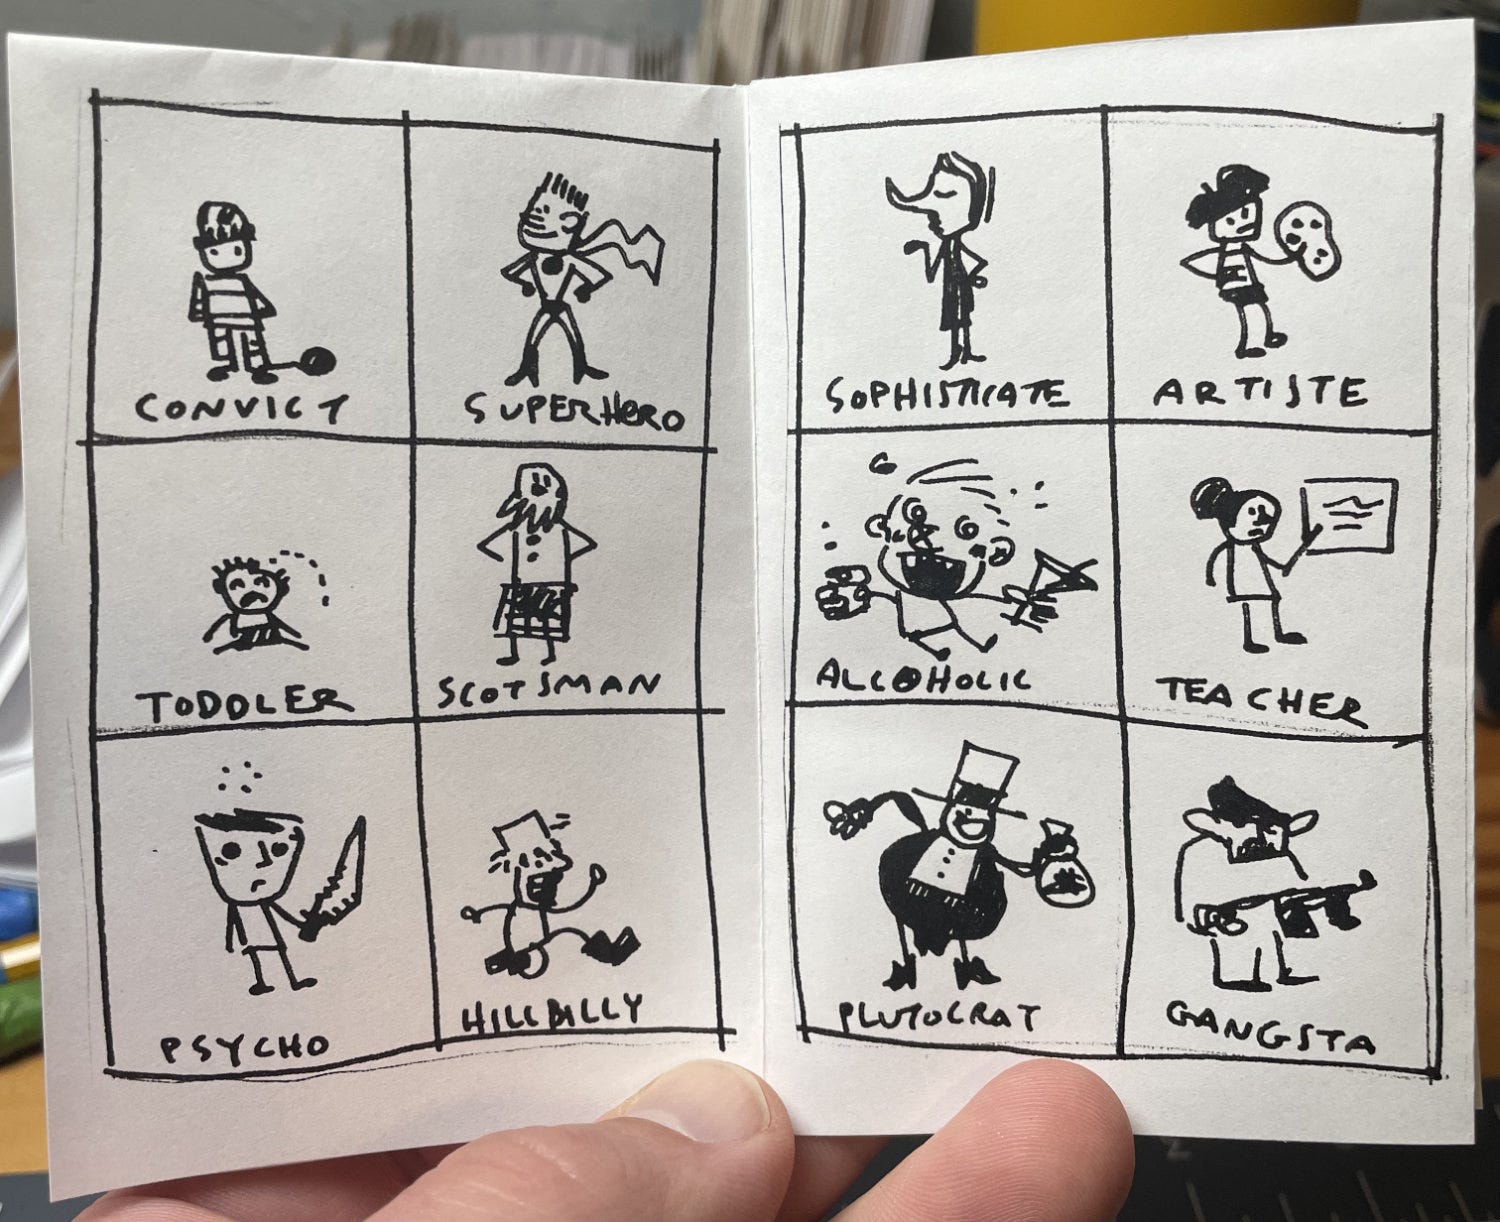 CONVICT
SUPERHERO
TODDLER
SCOTSMAN
PSYCHO
HILLBILLY
SOPHISTICATE
ARTISTE
ALCOHOLIC
TEACHER
PLUTOCRAT
GANGSTA